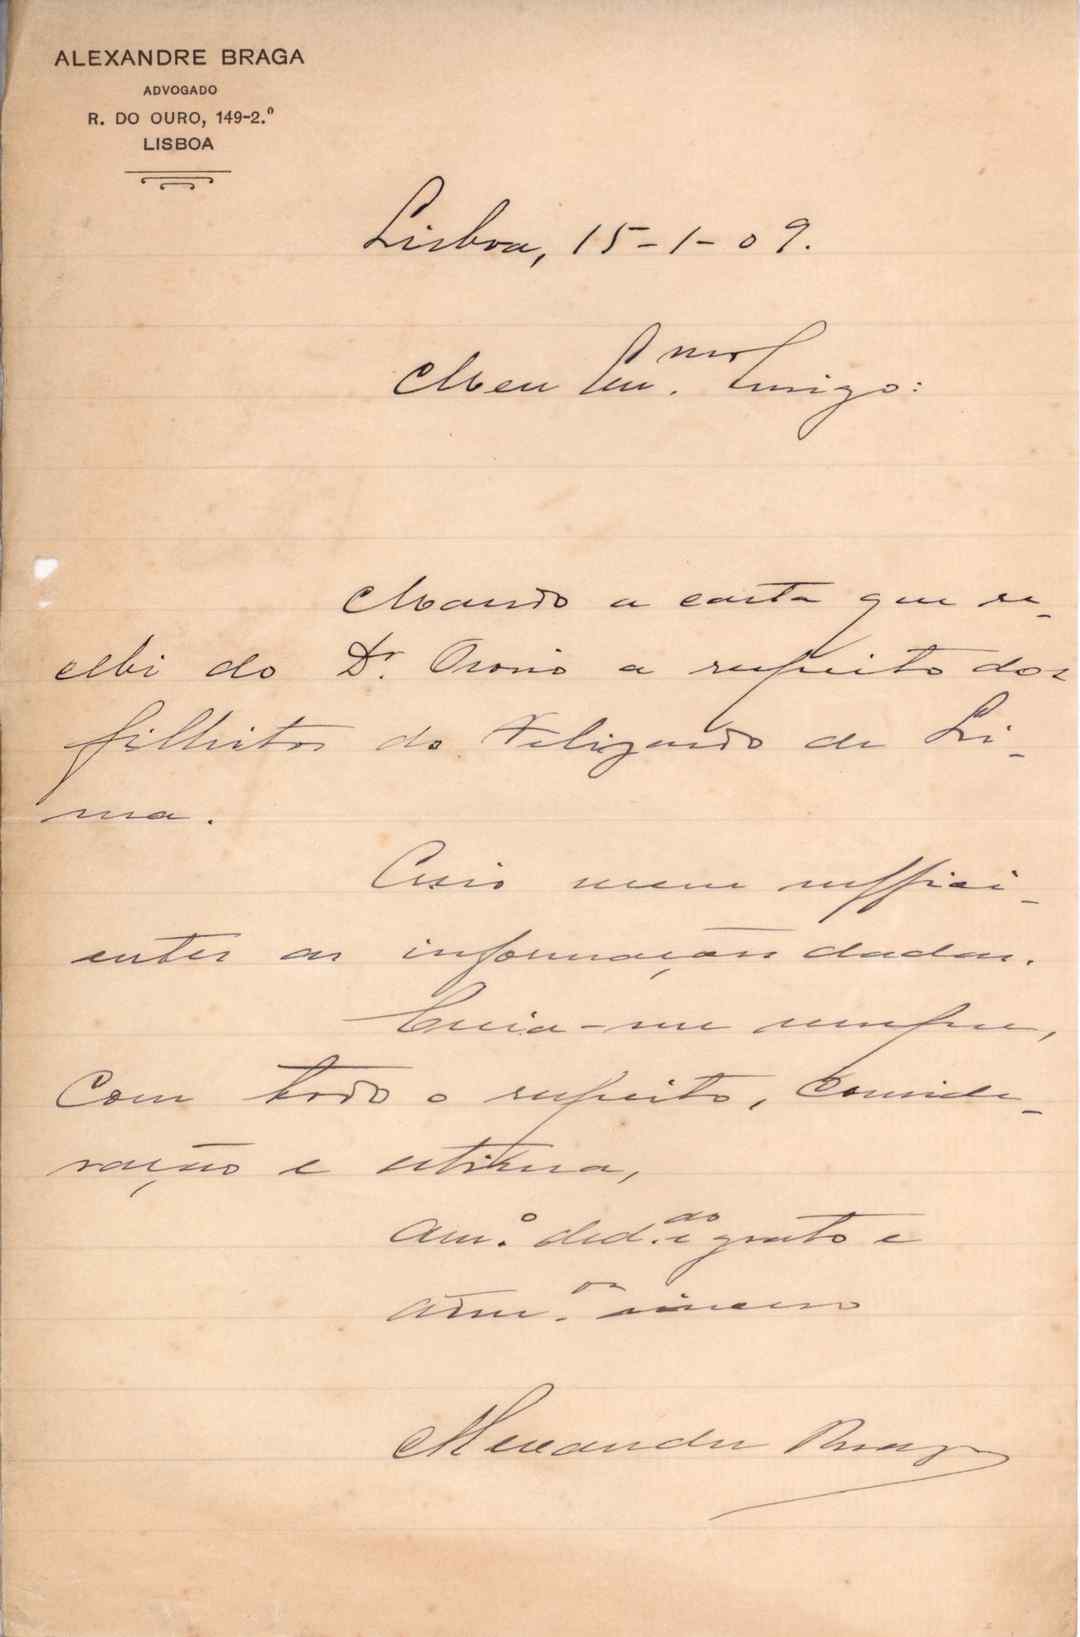 ALEXANDRE BRAGA
ADVOGADO
R. DO OURO, 149-2.º
LISBOA
Lisboa, 15-1-09.
Meu Em.mo Amigo:
Mando a carta que re-
cebi do Dr. Osorio a respeito dos
filhitos do Felizardo de Li-
ma.
Creio serem suffici-
entes as informações dadas.
Creia-me sempre,
Com todo o respeito, conside-
ração e estima,
am.º ded.do e grato e
adm.or sincero
Alexandre Braga